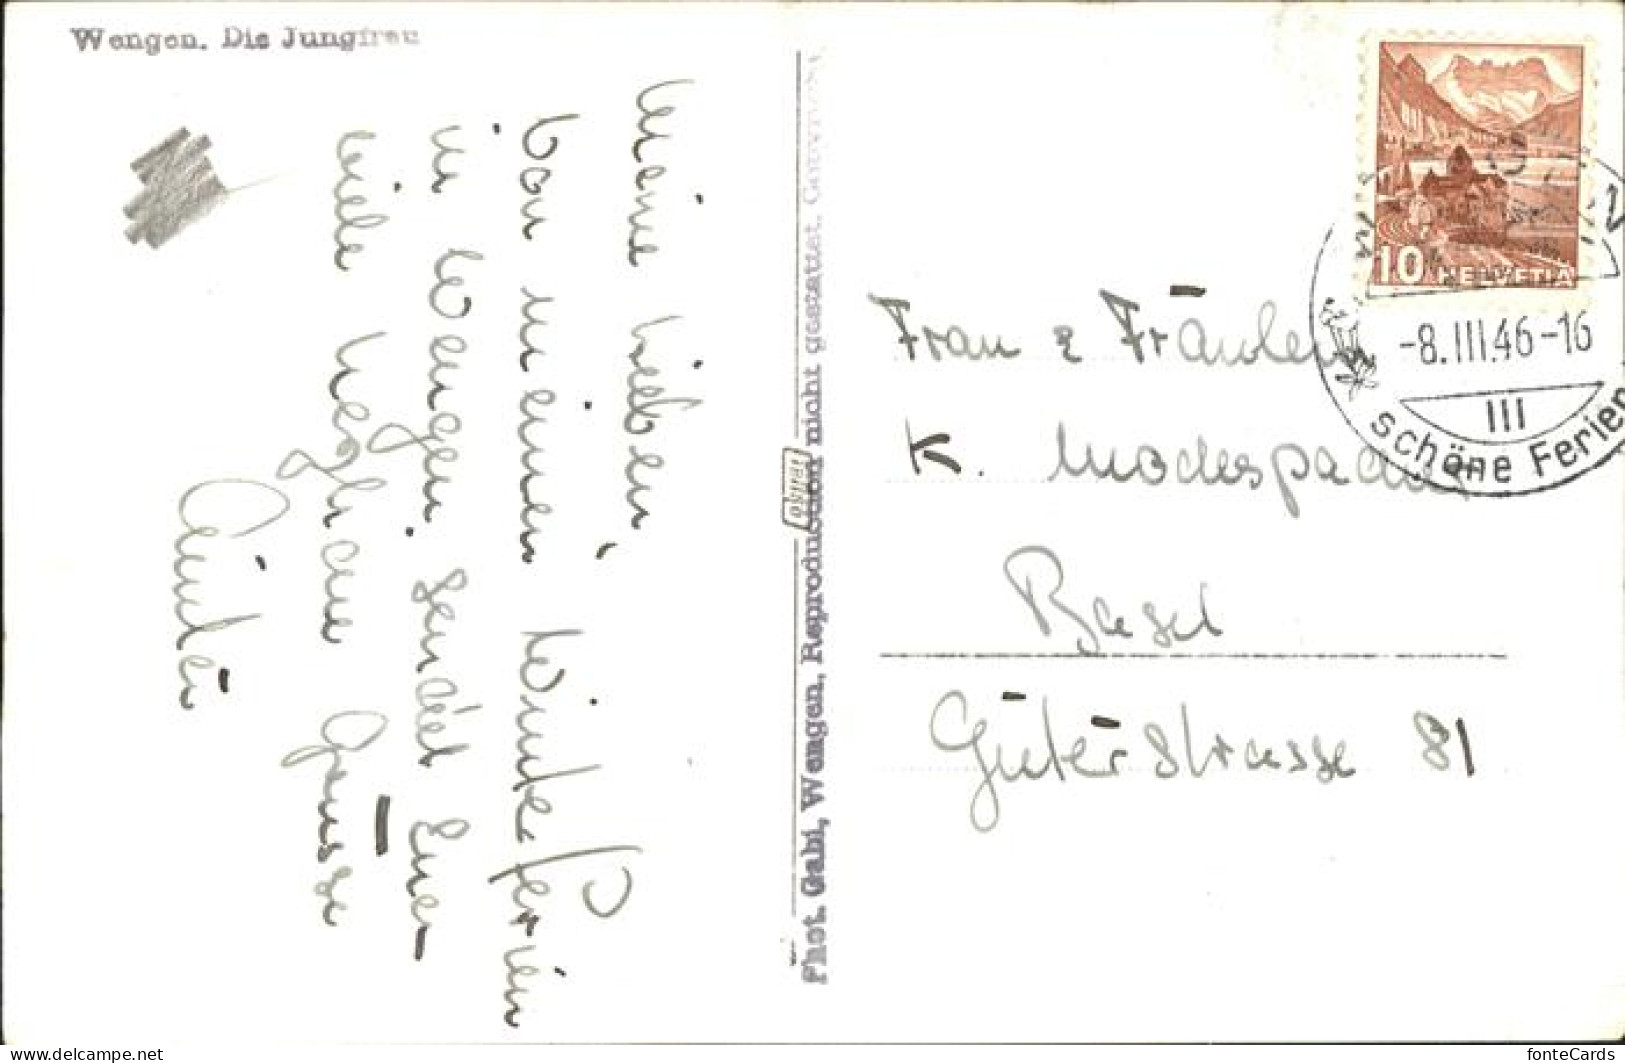 Wengen. Die Jungfrau
Meine Lieben,
Von meinen Winterferien
in Wengen, sendet Euer
viele herzliche Grüsse
Phot. Gabi, Wengen, Reproduktion nicht gestattet.
TRÜB
10 HELVETIA
-8.III.46-16
III
schöne Ferien
Frau & Fräulein
K.
Basel
Güterstrasse 81
delcampe.net
fonteCards